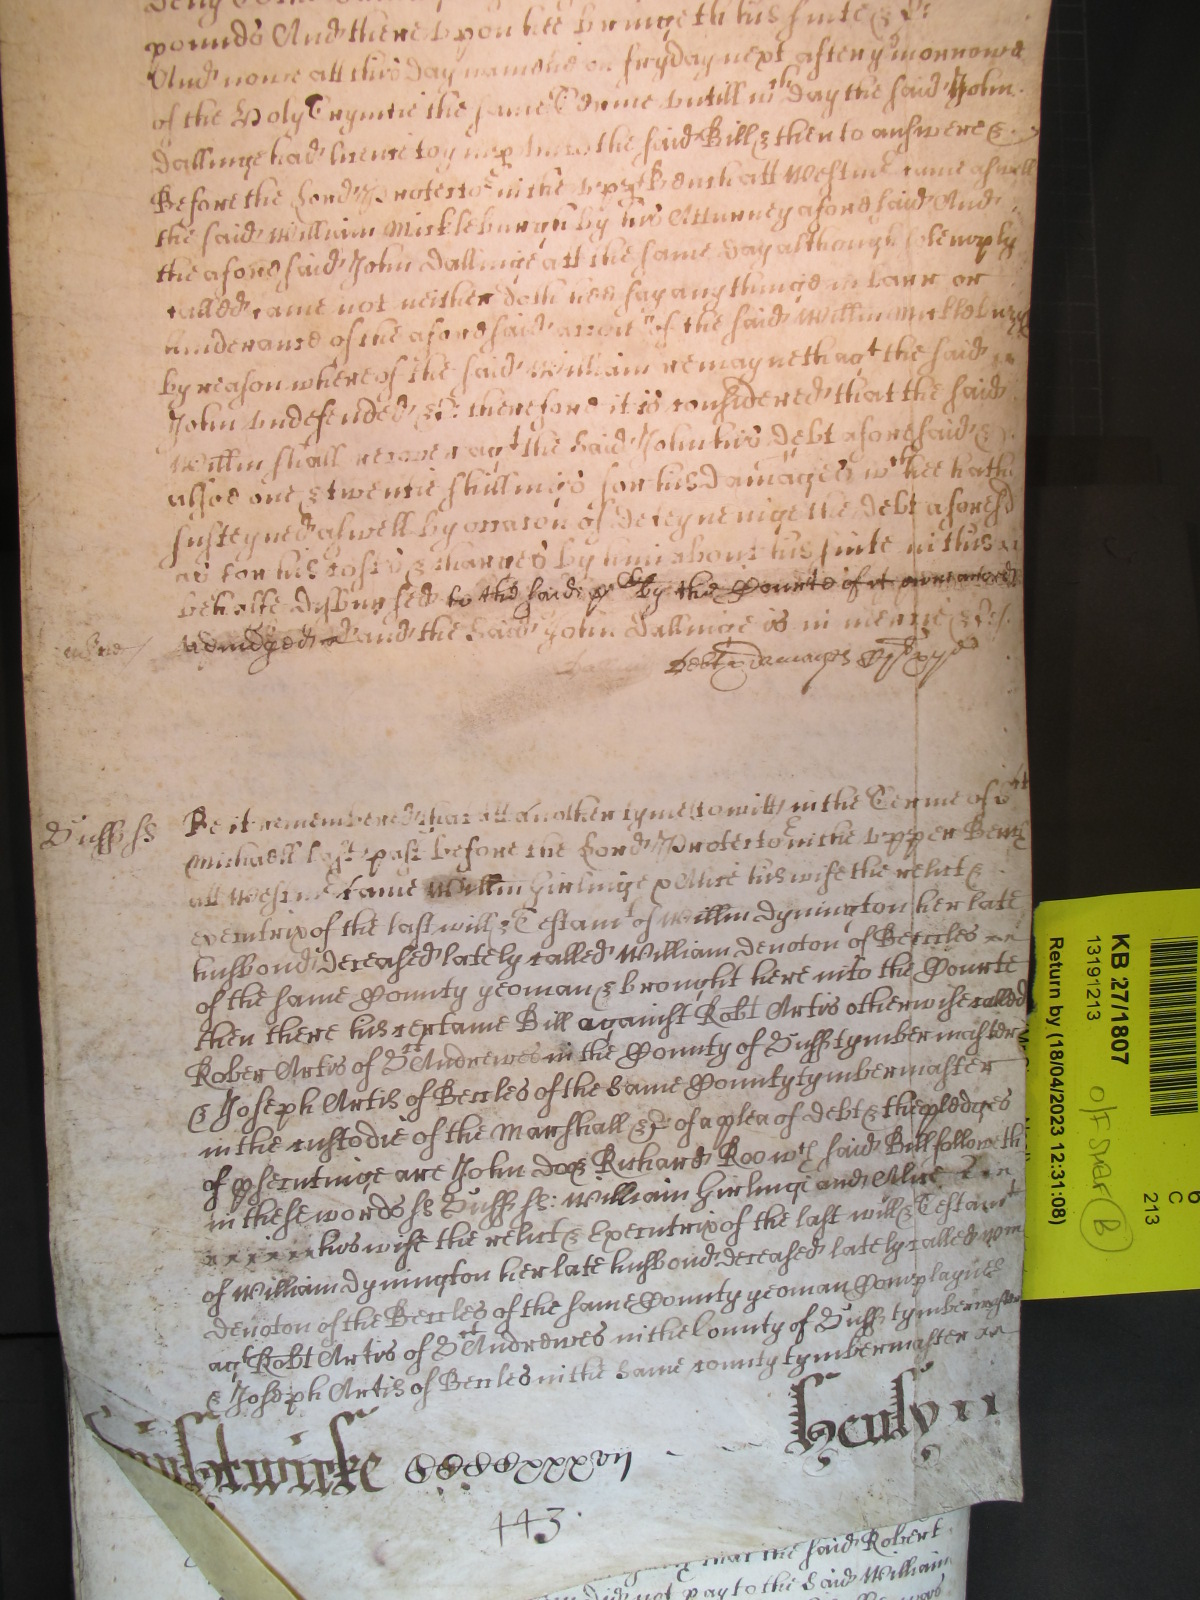 pounds And thereupon hee bringeth his suite &c:
And nowe att this day namelie on fryday next after ye morrowe
of the Holy Trynitie the same Terme untill wch day the said John
Dallinge had licence to ymparle unto the said Bill & then to answere &c
Before the Lord Protector in the upp Bench att Westmr came aswell
the said William Mickleburgh by his Atturney aforesaid And
the aforesaid John Dallinge att the same day although solemply
called came not neither doth hee say any thinge in barr or
hinderance of the aforesaid accon of the said Willm Mickleburgh
by reason whereof the said William remayneth agt the said
John undefended &c: therefore it is considered that the said
Willm shall recover agt the said John his debt aforesaid &
alsoe one & twentie shillings for his damages wch hee hath
susteyned aswell by occacon of deteyneinge the debt aforesd
as for his costs & charges by him about his suite in this
behalfe disbursed to the said by the Courte of it
adiudged and the said John Dallinge is in mercie &c:
debt & damages
Suff ss
Be it remembered that att another tyme to witt in the Terme of St
Michaell last past before the Lord Protector in the upper Bench
att Westmr came Willm Girlinge & Alice his wife the relict &
executrix of the last will & Testamt of Willm Dynington her late
husbond deceased lately called William Denoton of Beccles
of the same County yeoman & brought here into the Courte
then there his certaine Bill against Robt Artis otherwise called
Rober Artis of St Andrewes in the County of Suff tymbermaster
& Joseph Artis of Beccles of the same County tymbermaster
in the custodie of the Marshall &c of a plea of debt & the pledges
of psecutinge are John Doe & Richard Roo wch said Bill followeth
in these words ss Suff ss: William Girlinge and Alice
his wife the relict & Executrix of the last will & Testamt
of William Dynington her late husbond deceased lately called Wm
Denoton of the Beccles of the same County yeoman Complayne
agt Robt Artis of St Andrewes in the County of Suff tymbermaster
& Joseph Artis of Beccles in the same county tymbermaster
143
that the said Robert
did not pay to the said William
KB 27/1807
13191213
Return by (18/04/2023 12:31:08)
C
213
B